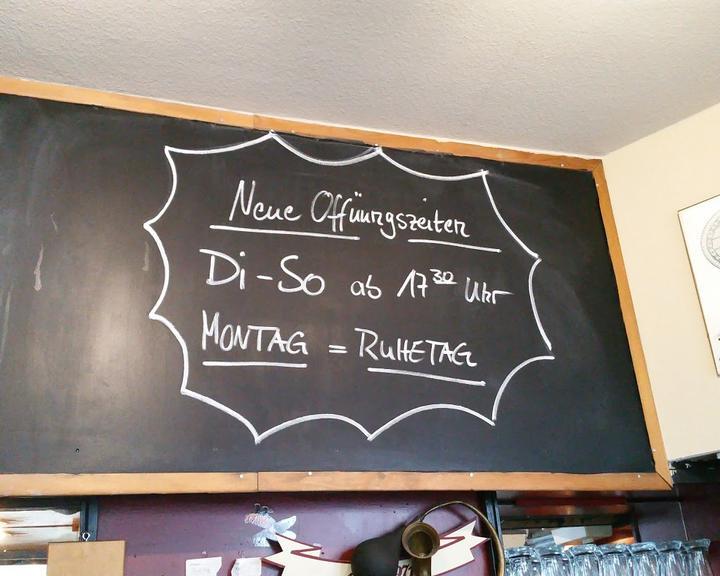 Neue Offüungszeiten
Di-So ab 17³⁰ Uhr
MONTAG = RUHETAG